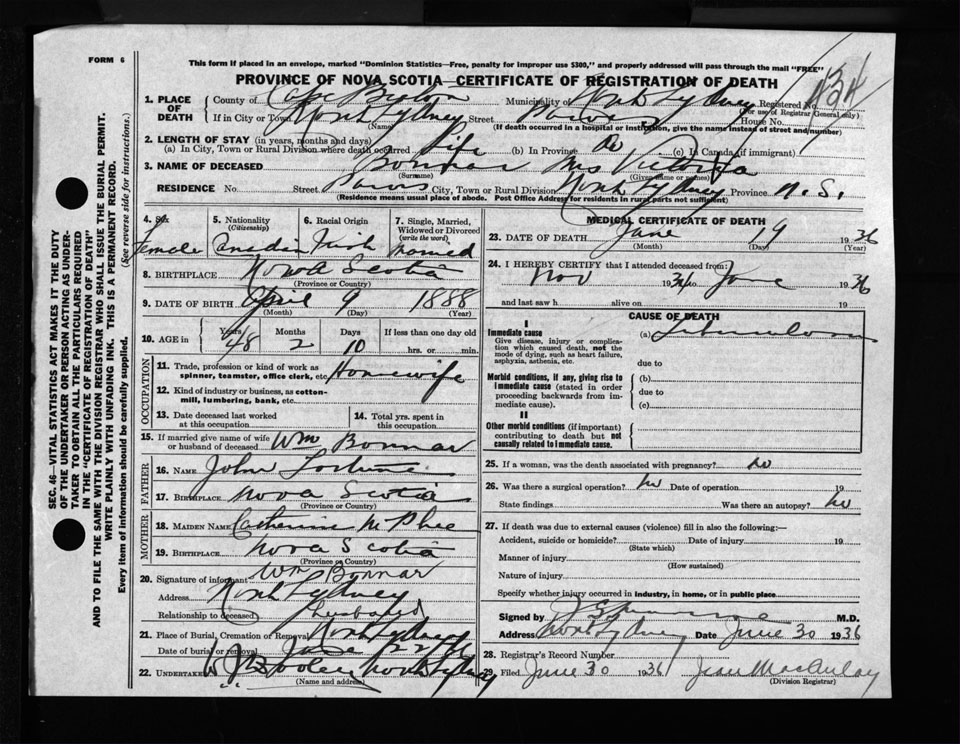 FORM 6
This form if placed in an envelope, marked "Dominion Statistics—Free, penalty for improper use $300," and properly addressed will pass through the mail "FREE"
PROVINCE OF NOVA SCOTIA—CERTIFICATE OF REGISTRATION OF DEATH
1. PLACE OF DEATH
County of Cape Breton Municipality of North Sydney Registered No.
(For use of Registrar General only)
If in City or Town North Sydney Street House No.
(Name) (If death occurred in a hospital or institution, give the name instead of street and number)
2. LENGTH OF STAY (in years, months and days)
(a) In City, Town or Rural Division where death occurred life (b) In Province do (c) In Canada (if immigrant)
3. NAME OF DECEASED Bonnar Mrs Victoria
(Surname) (Given name or names)
RESIDENCE No. Street City, Town or Rural Division North Sydney Province N. S.
(Residence means usual place of abode. Post Office Address for residents in rural parts not sufficient)
4. Sex Female
5. Nationality (Citizenship) Canadian
6. Racial Origin Irish
7. Single, Married, Widowed or Divorced (write the word) Married
8. BIRTHPLACE Nova Scotia
(Province or Country)
9. DATE OF BIRTH April 9 1888
(Month) (Day) (Year)
10. AGE in Years 48 Months 2 Days 10 If less than one day old hrs. or min.
OCCUPATION
11. Trade, profession or kind of work as spinner, teamster, office clerk, etc. Housewife
12. Kind of industry or business, as cotton-mill, lumbering, bank, etc.
13. Date deceased last worked at this occupation
14. Total yrs. spent in this occupation
15. If married give name of wife or husband of deceased Wm Bonnar
FATHER
16. NAME John
17. BIRTHPLACE Nova Scotia
(Province or Country)
MOTHER
18. MAIDEN NAME Catherine McPhee
19. BIRTHPLACE Nova Scotia
(Province or Country)
20. Signature of informant Wm Bonnar
Address North Sydney
Relationship to deceased husband
21. Place of Burial, Cremation or Removal North Sydney
Date of burial or removal June 22
22. UNDERTAKER North Sydney
(Name and address)
MEDICAL CERTIFICATE OF DEATH
23. DATE OF DEATH June 19 1936
(Month) (Day) (Year)
24. I HEREBY CERTIFY that I attended deceased from:
Nov 1934 to June 1936
and last saw h alive on 19
CAUSE OF DEATH
I
Immediate cause
Give disease, injury or complication which caused death, not the mode of dying, such as heart failure, asphyxia, asthenia, etc.
(a)
due to
Morbid conditions, if any, giving rise to immediate cause (stated in order proceeding backwards from immediate cause).
(b)
due to
(c)
II
Other morbid conditions (if important) contributing to death but not causally related to immediate cause.
25. If a woman, was the death associated with pregnancy? no
26. Was there a surgical operation? no Date of operation 19
State findings Was there an autopsy? no
27. If death was due to external causes (violence) fill in also the following:—
Accident, suicide or homicide? Date of injury 19
(State which)
Manner of injury
(How sustained)
Nature of injury
Specify whether injury occurred in industry, in home, or in public place
Signed by M.D.
Address North Sydney Date June 30 1936
28. Registrar's Record Number
29. Filed June 30 1936 Jean MacAulay
(Division Registrar)
SEC. 46—VITAL STATISTICS ACT MAKES IT THE DUTY
OF THE UNDERTAKER OR PERSON ACTING AS UNDER-
TAKER TO OBTAIN ALL THE PARTICULARS REQUIRED
IN THE "CERTIFICATE OF REGISTRATION OF DEATH"
AND TO FILE THE SAME WITH THE DIVISION REGISTRAR WHO SHALL ISSUE THE BURIAL PERMIT.
WRITE PLAINLY WITH UNFADING INK. THIS IS A PERMANENT RECORD.
Every item of information should be carefully supplied. (See reverse side for instructions.)